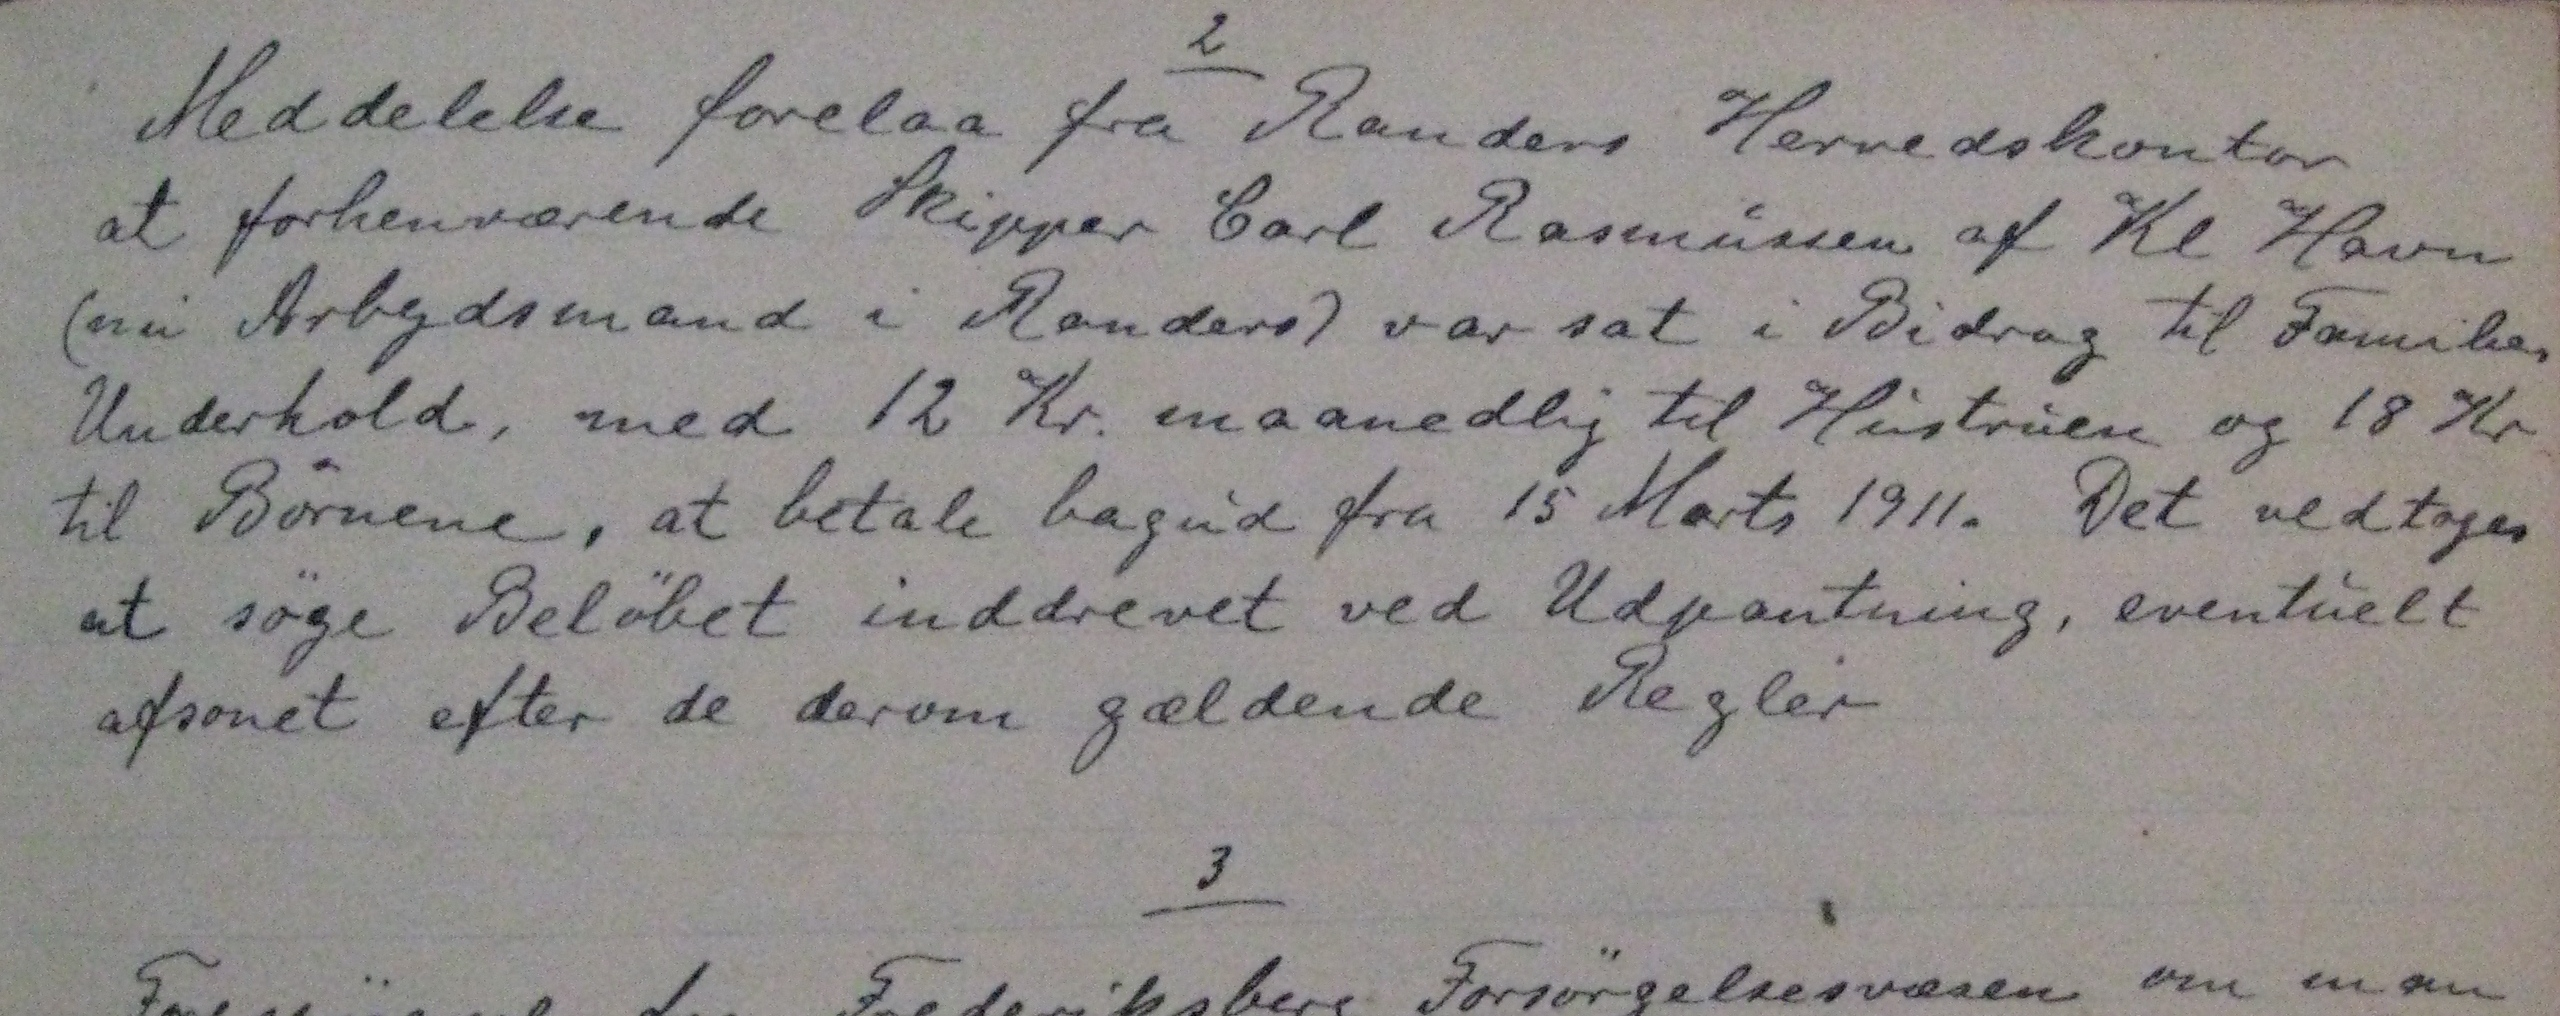 2
Meddelelse forelaa fra Randers Herredskontor
at forhenværende Skipper Carl Rasmussen af Kl Havn
(nu Arbejdsmand i Randers) var sat i Bidrag til Familiens
Underhold, med 12 Kr. maanedlig til Hustruen og 18 Kr
til Börnene, at betale bagud fra 15 Marts 1911. Det vedtoges
at söge Belöbet inddrevet ved Udpantning, eventuelt
afsonet efter de derom gældende Regler
3
Forespörgsel fra Frederiksberg Forsörgelsesvæsen om man